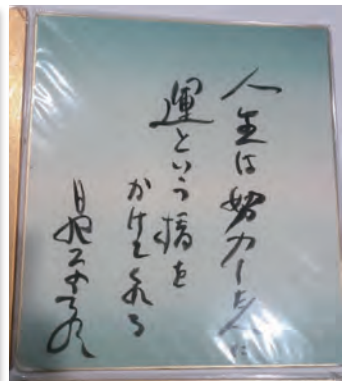 人生は努力した人に
運という橋を
かけて来る